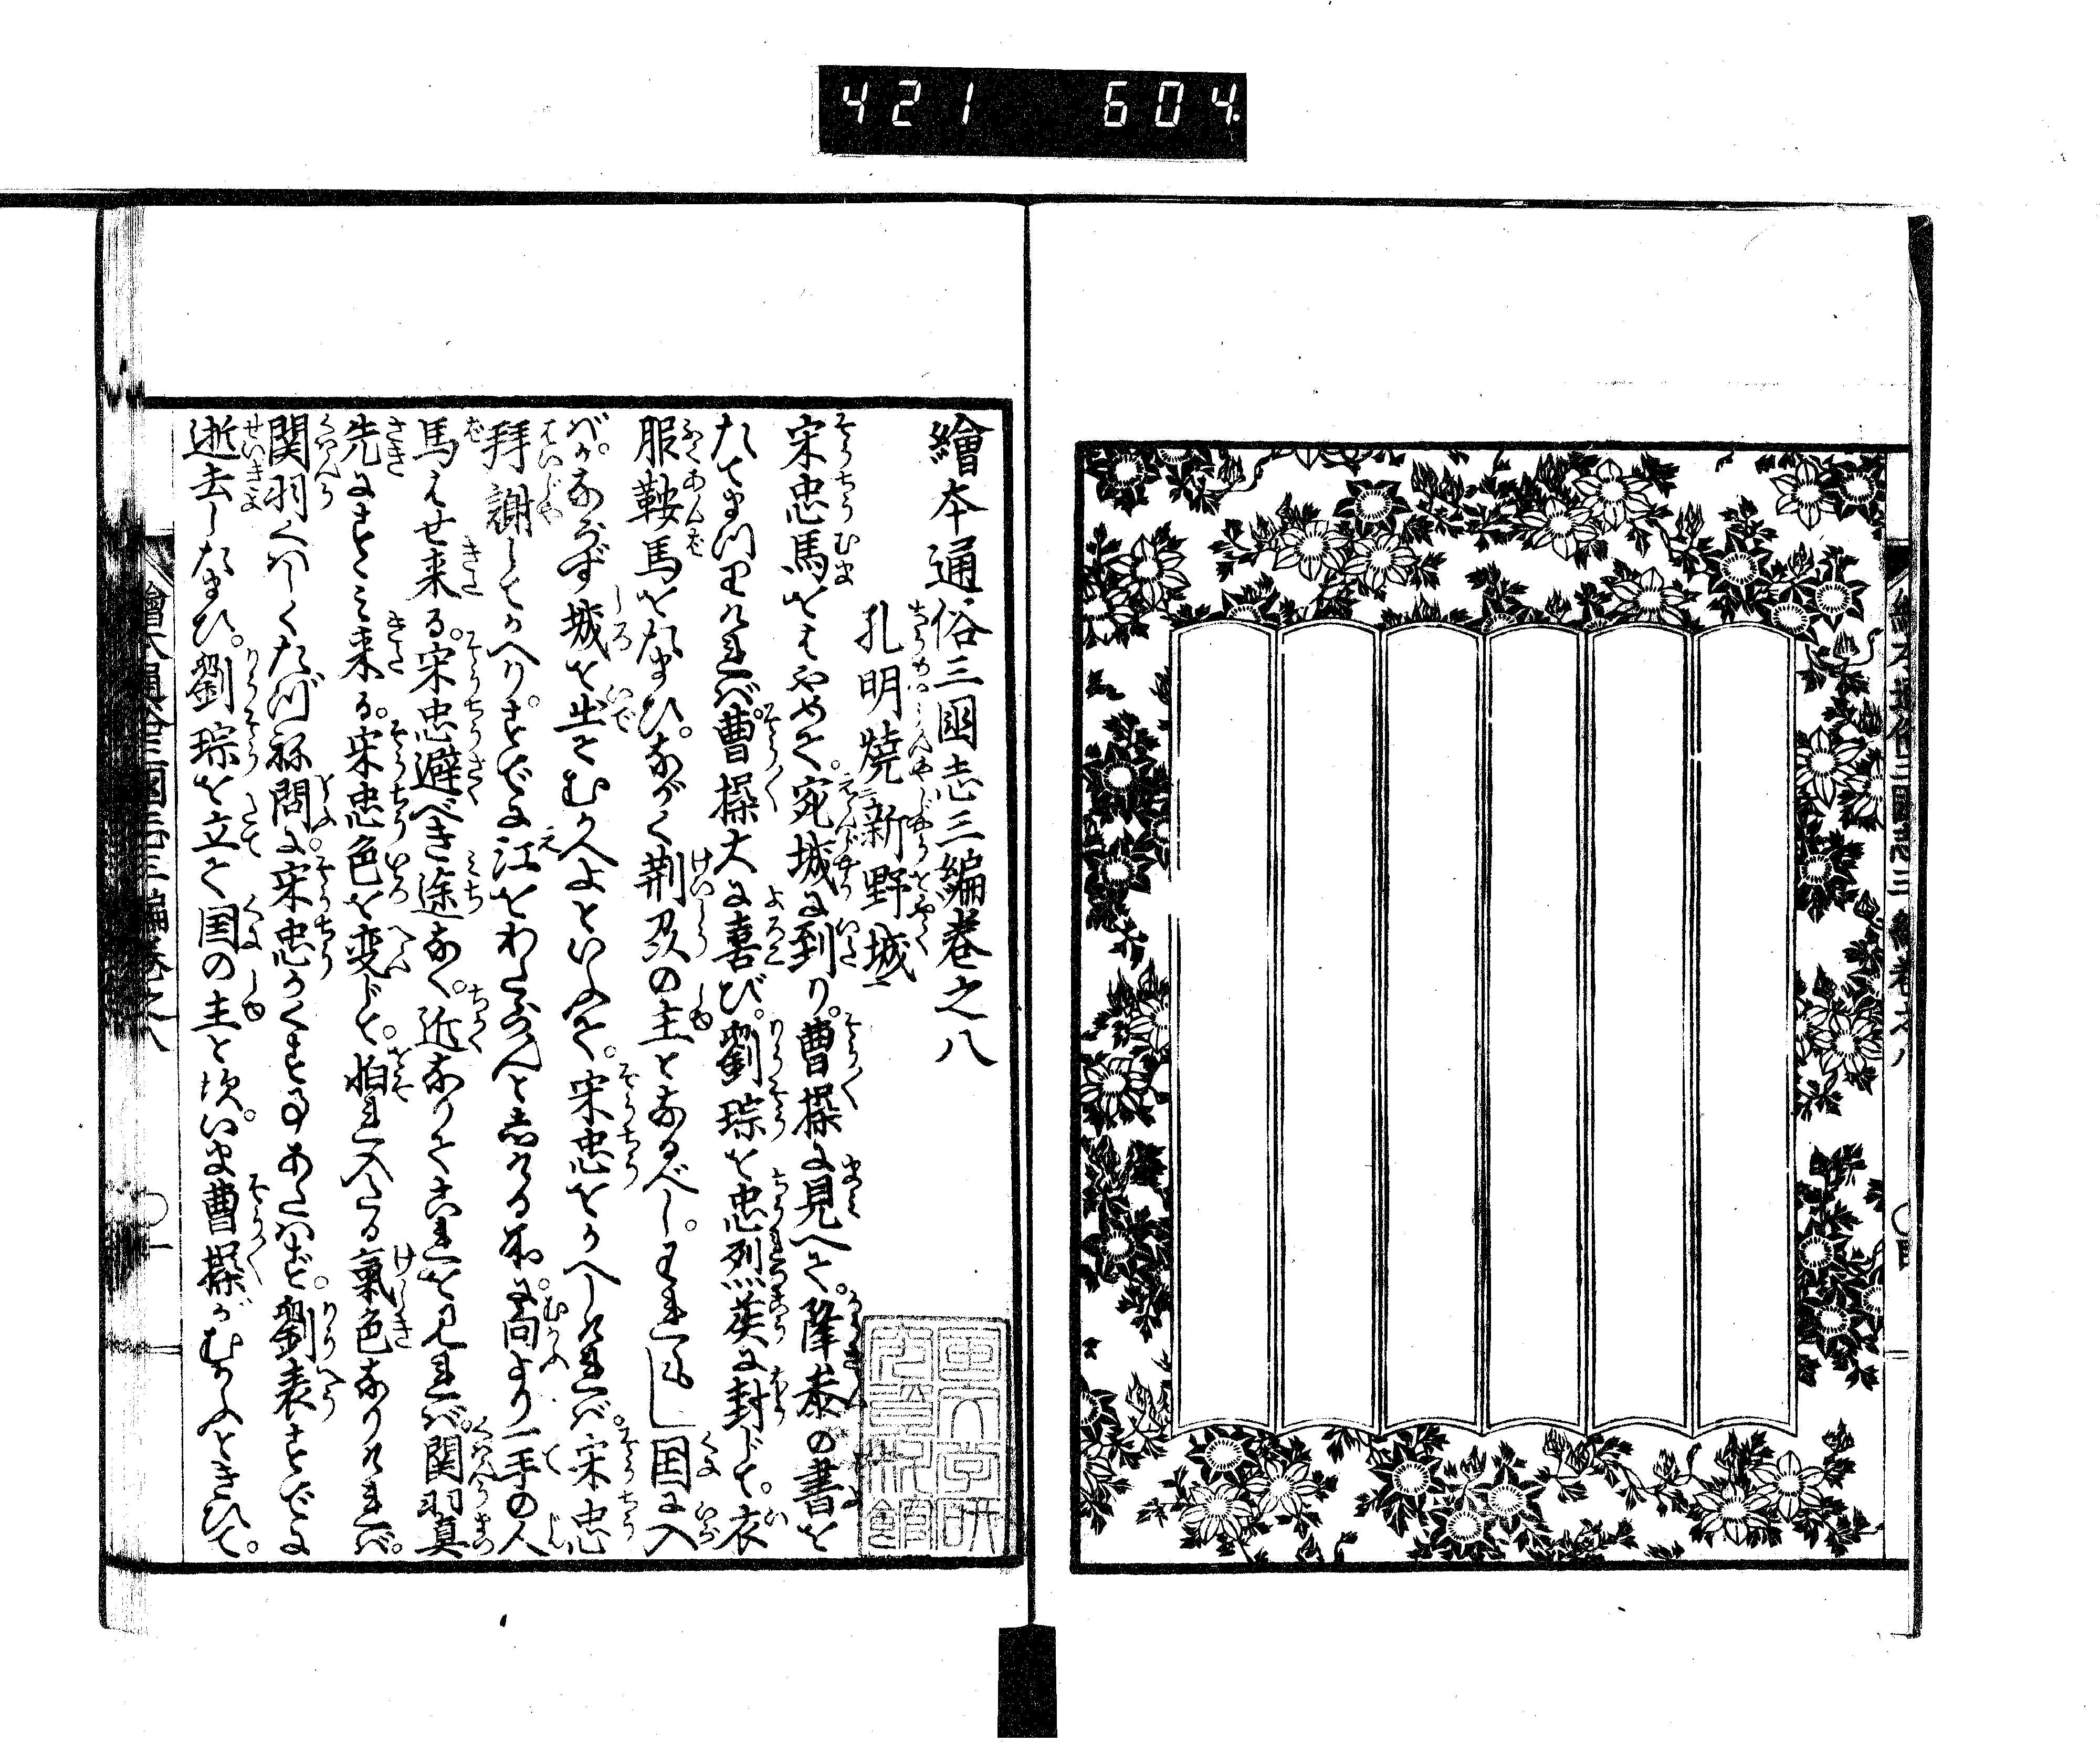 421 604
繪本通俗三國志三編巻之八
孔明燒新野城
宋忠馬をはやめて。宛城に到り。曹操に見へて。降参の書を
たてまつりければ。曹操大に喜び。劉琮を忠烈侯に封じて。衣
服鞍馬をたまひ。ながく荆州の主となるべし。われ国に入
ばかならず城を出てむかへよといふて。宋忠をかへしければ。宋忠
拜謝してかへり。すでに江をわたらんとしける所に。向より一手の人
馬はせ来る。宋忠避べき途なく。近なりてこれを見れば。関羽真
先にすすみ来る。宋忠色を変じて。怕れ入たる氣色なりければ。
関羽くはしくたづね問に。宋忠かくすことあたはず。劉表すでに
逝去したまひ。劉琮を立て国の主とし。いま曹操がむかふときひて。
繪本通俗三國志三編巻之八
〇一